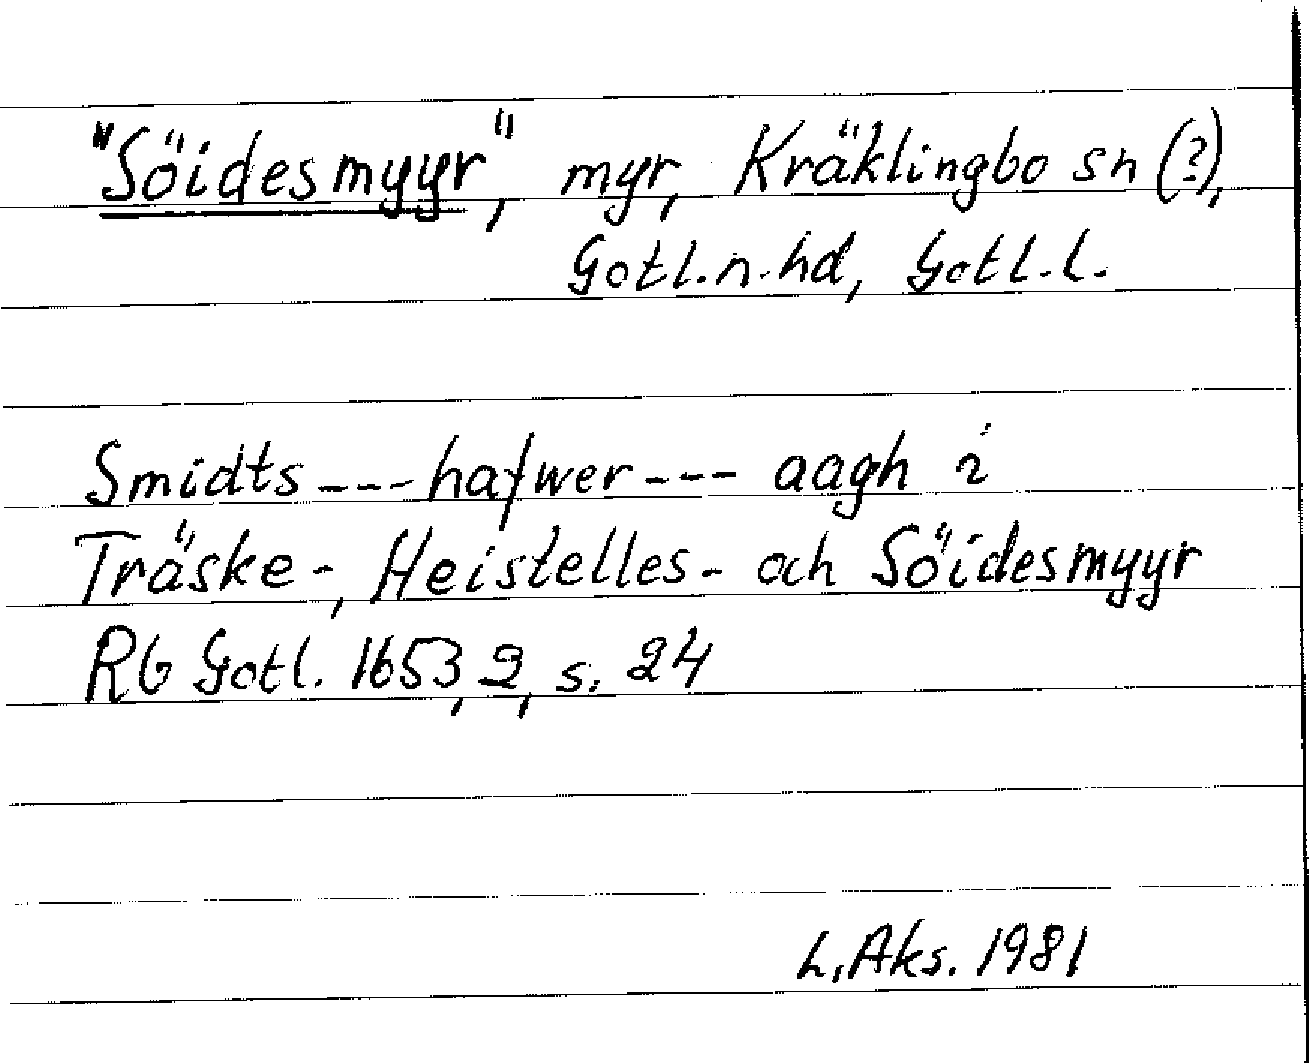 "Söidesmyyr", myr, Kräklingbo sn (?),
Gotl.n.hd, Gotl.l.
Smidts --- hafwer --- aagh i
Träske-, Heistelles- och Söidesmyyr
Rb Gotl. 1653, 2, s. 24
L. Aks. 1981